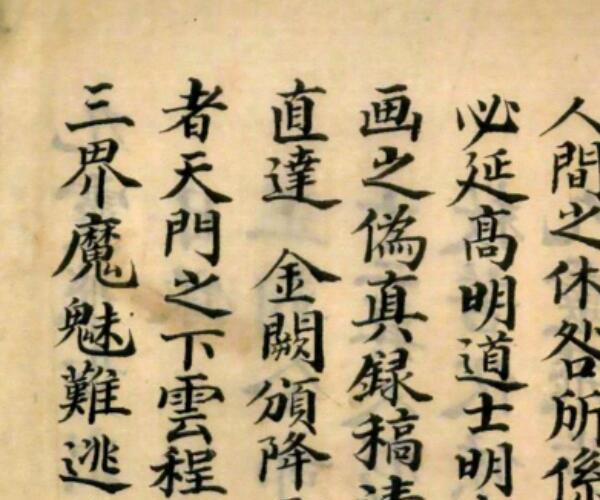 人間之休咎所係
必延髙明道士明
画之偽真録稿
直達 金闕頒降
者天門之下雲程
三界魔魅難逃